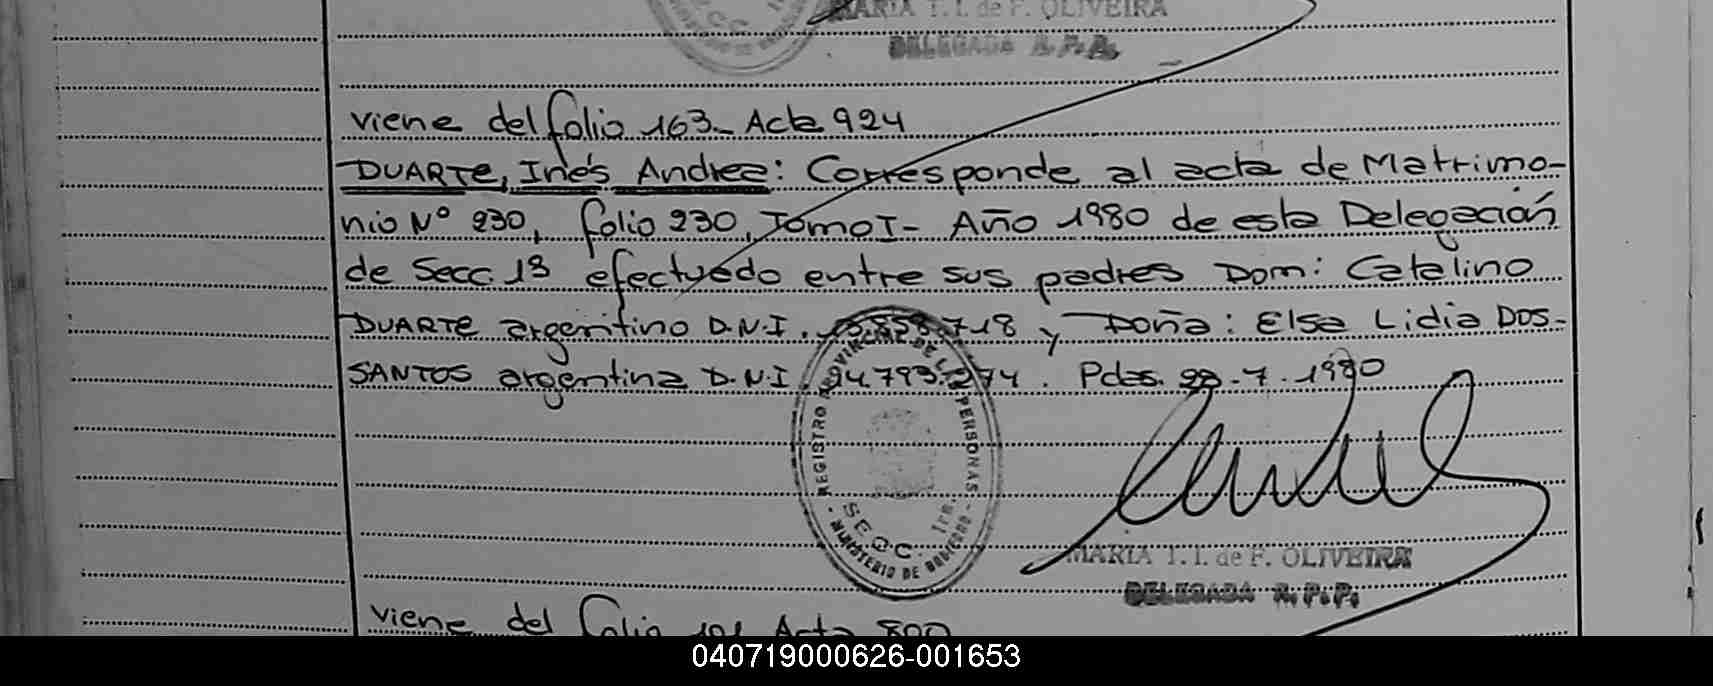 MARIA T. I. de F. OLIVEIRA
DELEGADA R. P. P.
viene del folio 163_ Acta 924
DUARTE, Inés Andrea: Corresponde al acta de Matrimo-
nio Nº 230, folio 230, Tomo I- Año 1980 de esta Delegación
de Secc. 13 efectuado entre sus padres Dom: Catalino
DUARTE argentino D.N.I. 718 y Doña: Elsa Lidia DOS-
SANTOS argentina D.N.I. 24.793.274. Pdas. 7.1980
REGISTRO PROVINCIAL DE LAS PERSONAS
MINISTERIO DE GOBIERNO
MARIA T. I. de F. OLIVEIRA
DELEGADA R. P. P.
viene del folio 101 Acta 800
040719000626-001653